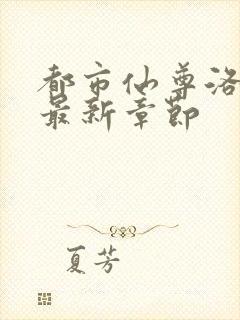 都市仙尊洛
最新章节
夏芳